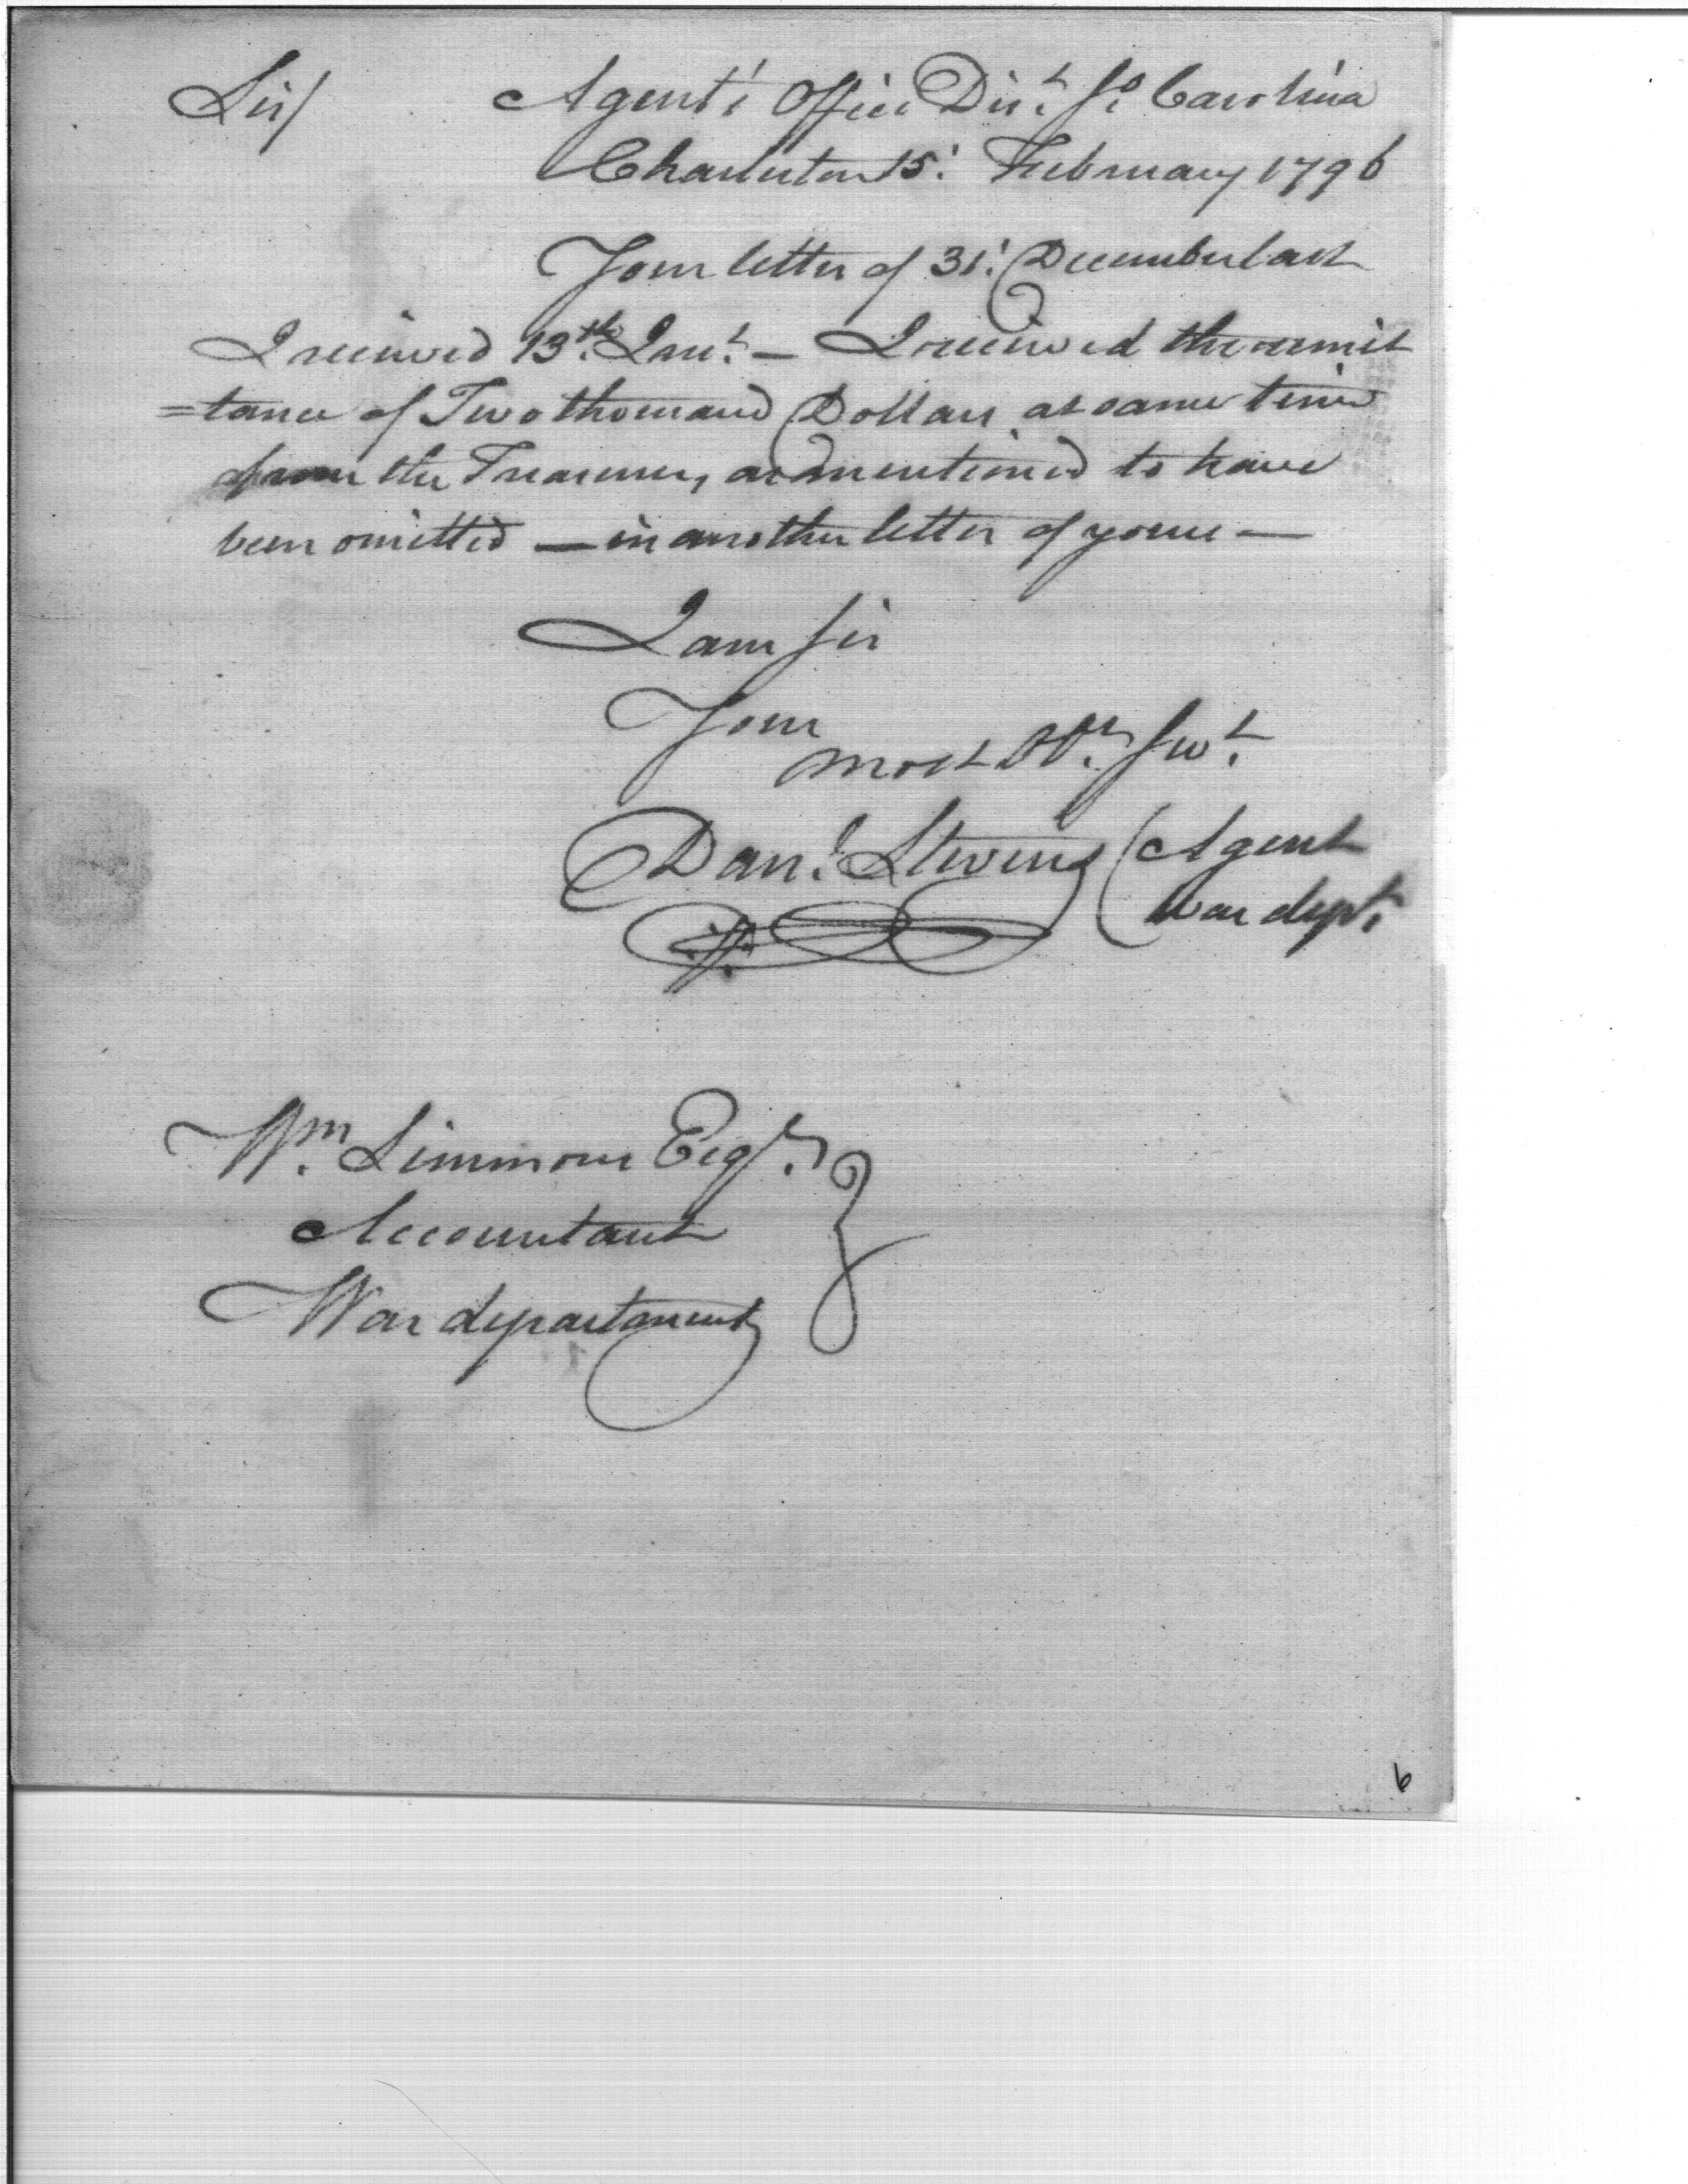 Sir/ Agent's Office Dist. So. Carolina
Charleston 15. February 1796
Your letter of 31. December last
I received 13th. Inst. — I received the remit
=tance of Two thousand Dollars at same time
from the Treasurer, as mentioned to have
been omitted — in another letter of yours —
I am Sir
Your
most Ob. Servt.
Danl. Stevens (Agent
War dept.
Wm. Simmons Esqr.
Accountant
War department
6